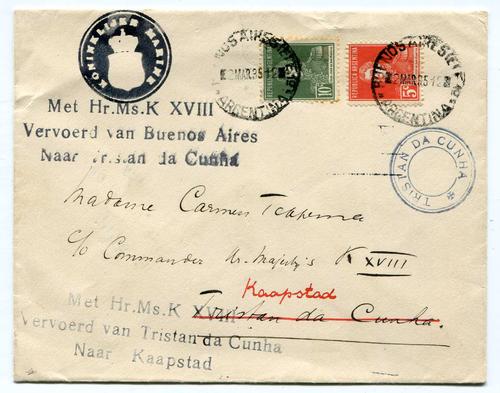 KONINKLIJKE MARINE
BUENOS AIRES
MAR.35
ARGENTINA
REPUBLICA ARGENTINA
10c
REPUBLICA ARGENTINA
5c
BUENOS AIRES
MAR35
ARGENTINA
Met Hr.Ms.K XVIII
Vervoerd van Buenos Aires
Naar Tristan da Cunha
TRISTAN DA CUNHA
Madame Carmen
c/o Commander Hr. Majesty's K XVIII
Kaapstad
Tristan da Cunha.
Met Hr.Ms.K XVIII
Vervoerd van Tristan da Cunha
Naar Kaapstad